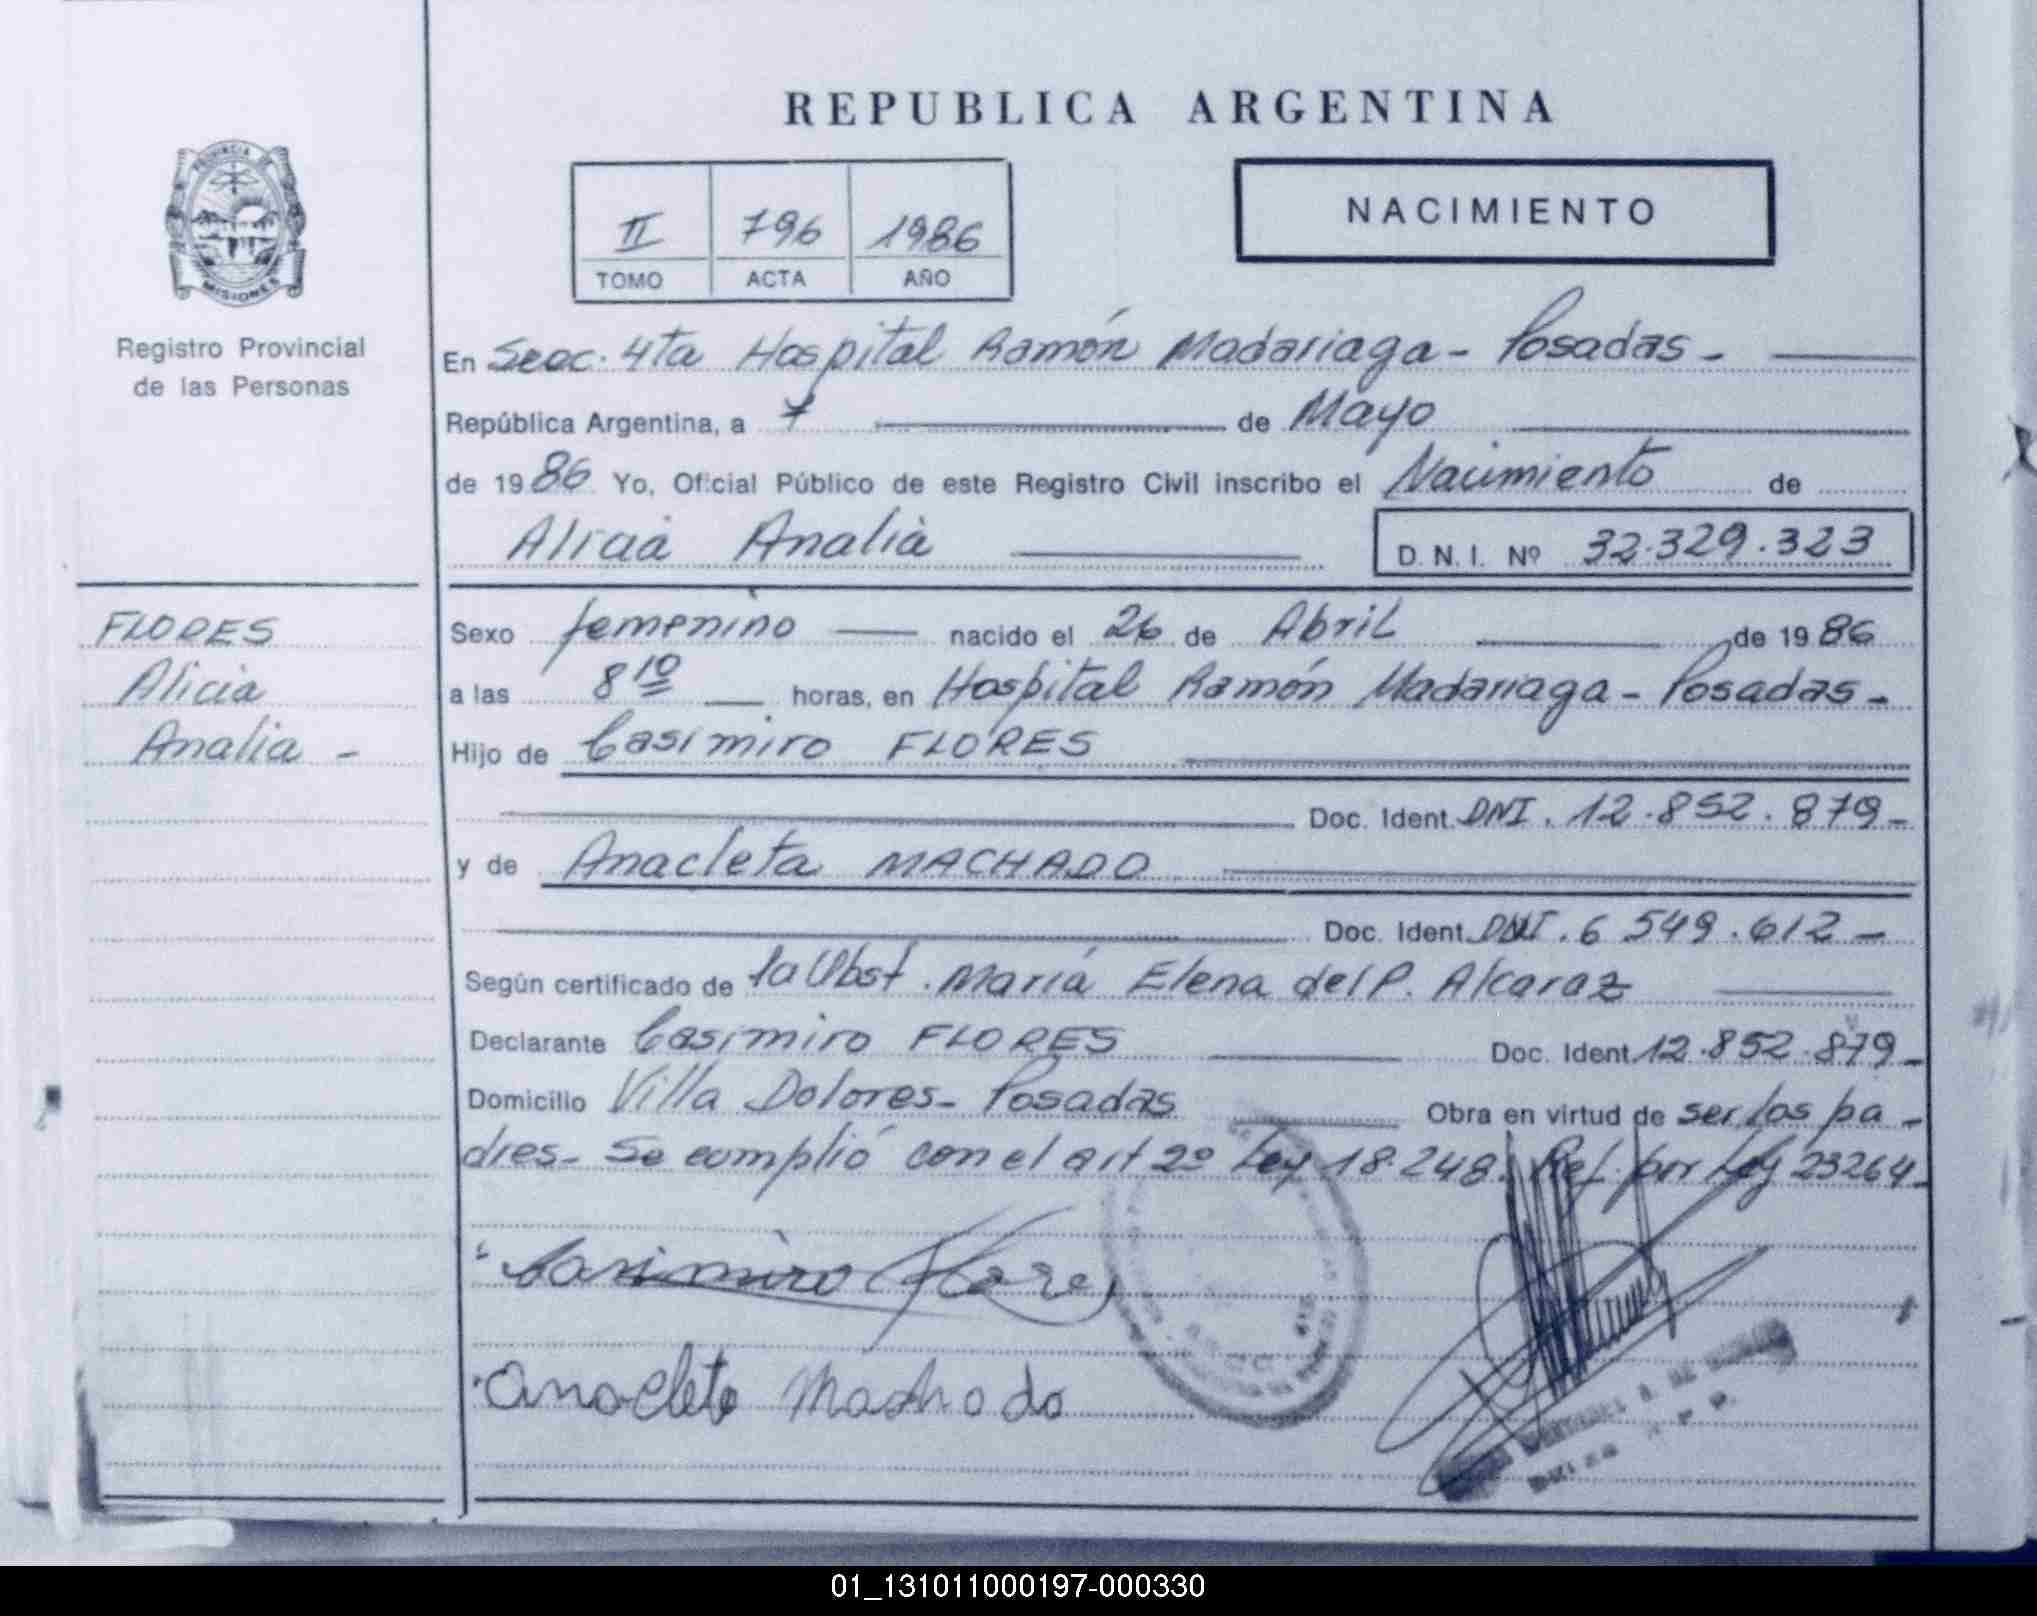 REPUBLICA ARGENTINA
PROVINCIA DE
MISIONES
Registro Provincial
de las Personas
II 796 1986
TOMO ACTA AÑO
NACIMIENTO
En Secc. 4ta Hospital Ramón Madariaga - Posadas -
República Argentina, a 7 de Mayo
de 1986 Yo, Oficial Público de este Registro Civil inscribo el Nacimiento de
Alicia Analia D. N. I. Nº 32.329.323
FLORES
Alicia
Analia -
Sexo femenino nacido el 26 de Abril de 1986
a las 8 10 horas, en Hospital Ramón Madariaga - Posadas -
Hijo de Casimiro FLORES
Doc. Ident. DNI. 12.852.879 -
y de Anacleta MACHADO
Doc. Ident. DNI. 6.549.612 -
Según certificado de la Obst. María Elena del P. Alcaraz
Declarante Casimiro FLORES Doc. Ident. 12.852.879 -
Domicilio Villa Dolores - Posadas Obra en virtud de ser los pa -
dres - Se cumplió con el art 2º Ley 18.248. Ref. por Ley 23264 -
Casimiro Flores
Anacleta Machado
01_131011000197-000330